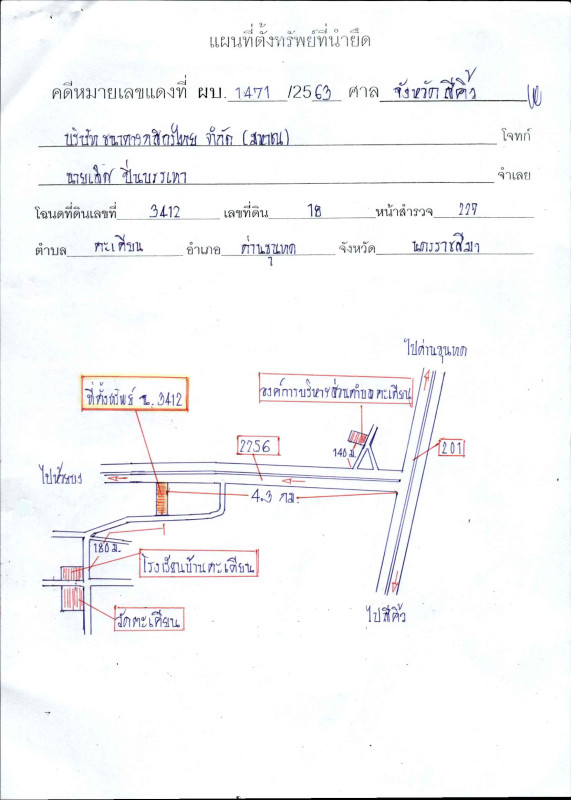 แผนที่ตั้งทรัพย์ที่นำยึด
คดีหมายเลขแดงที่ ผบ. 1471 /2563 ศาล จังหวัดสีคิ้ว
บริษัท ธนาคารกสิกรไทย จำกัด (มหาชน) โจทก์
นายเลิศ ชื่นบรรเทา จำเลย
โฉนดที่ดินเลขที่ 3412 เลขที่ดิน 18 หน้าสำรวจ 227
ตำบล ตะเคียน อำเภอ ด่านขุนทด จังหวัด นครราชสีมา
ไปด่านขุนทด
ที่ตั้งทรัพย์ ฉ. 3412
องค์การบริหารส่วนตำบลตะเคียน
2256
140 ม.
201
ไปห้วยบง
4.3 กม.
180 ม.
โรงเรียนบ้านตะเคียน
วัดตะเคียน
ไปสีคิ้ว